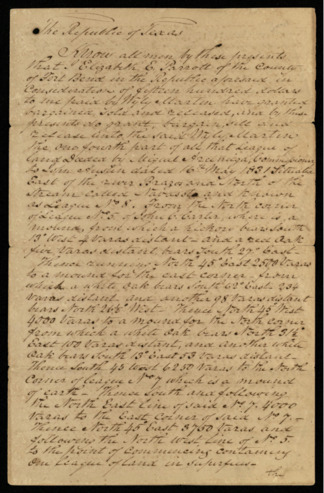 The Republic of Texas
Know all men by these presents
that I Elizabeth E. Parrott of the County
of Fort Bend in the Republic aforesaid in
Consideration of fifteen hundred dollars
to me paid by Wyly Martin have granted
bargained, Sold and released and by these
presents do grant, bargain, sell and
release unto the said Wyly Martin
the one fourth part of all that League of
Land Deeded by Miguel Arciniega, Commissioner
to John Austin dated 16th May 1831 Situate
East of the river Brazos and North of the
Stream called and known
as League No 8. From the North corner
of League No 5 of John is a
mound, from which a hickory bears South
13° West 4 varas distant and a red Oak
five Varas distant bears South 27° East
Thence running North 45° East 2500 Varas
to a mound for the east corner, from
which a white Oak bears South 62° East 234
varas distant and another 98 Varas distant
bears North 26½° West Thence North 45° West
4000 Varas to a mound for the North corner
from which a white Oak bears North
East 100 Varas distant, and another white
Oak bears South 13° East 53 Varas distant
Thence South 45 West 6250 Varas to the North
Corner of League No 7 which is a mound
of earth Thence South and following
the North East Line of said No 7, 4000
Varas to the East Corner of said No 7
Thence North 45 East 3750 Varas and
following the North West line of No 5.
to the point of commencing containing
One League of Land in Superfices
The